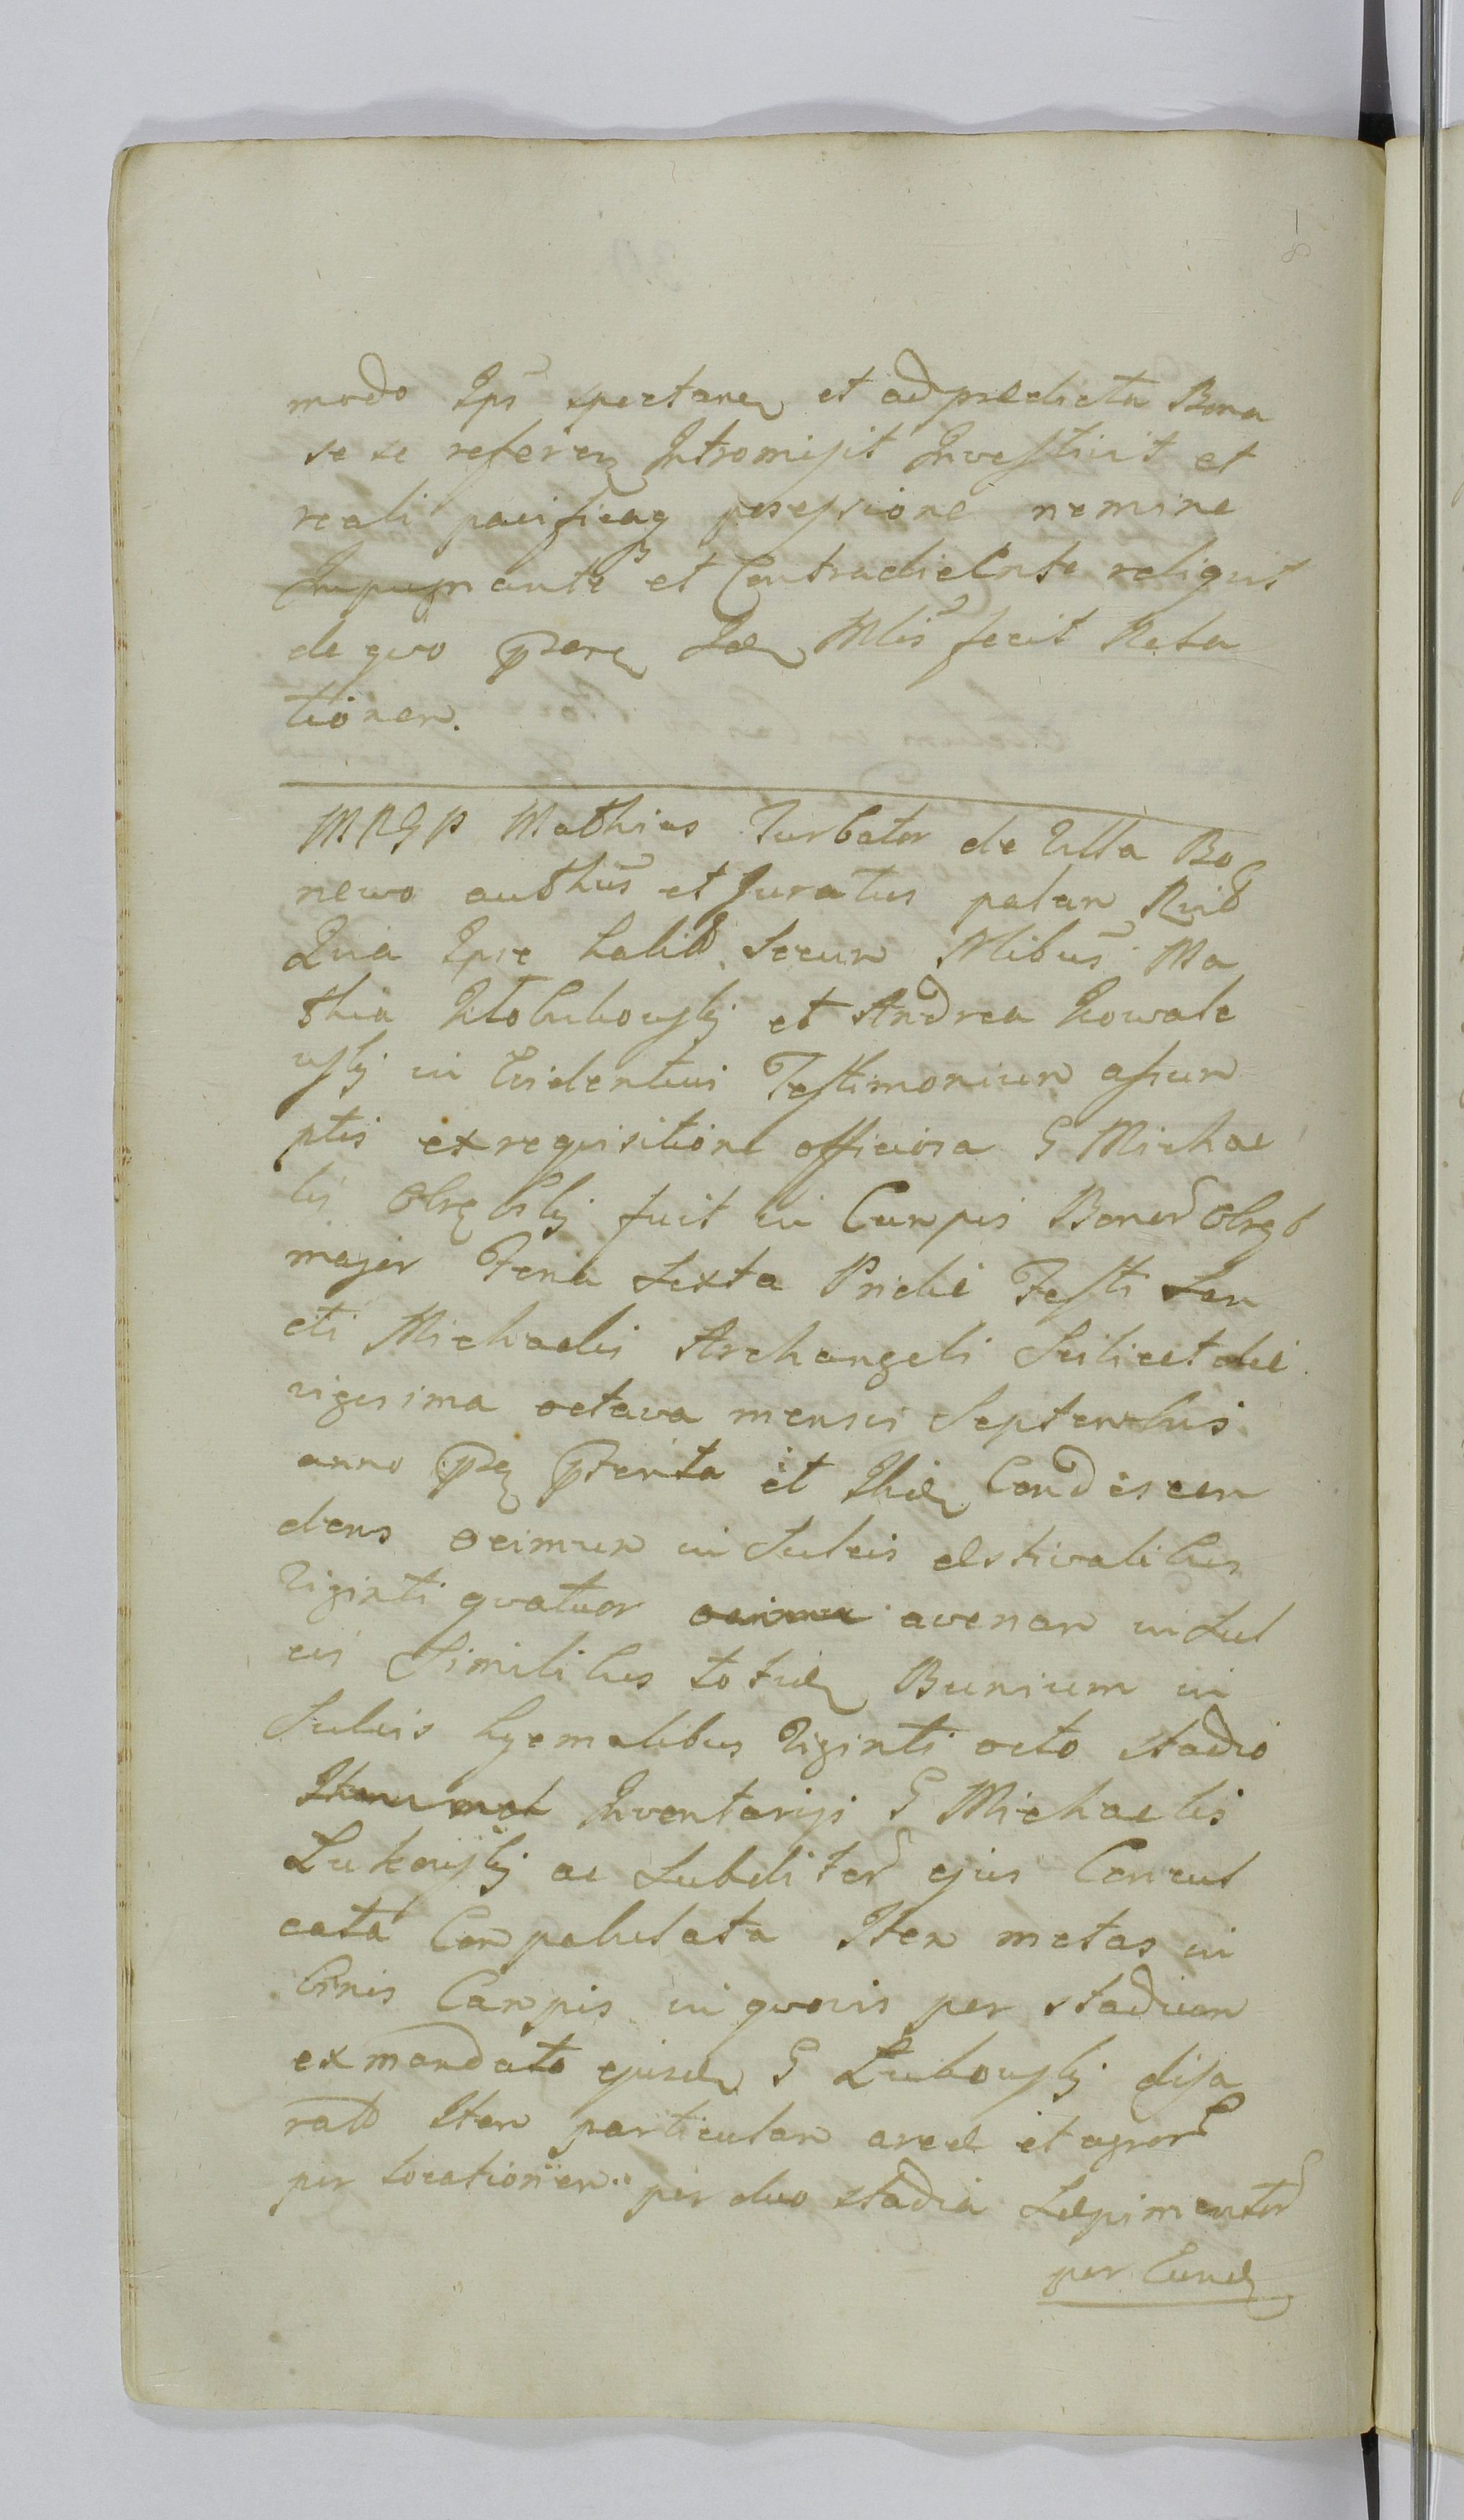 modo Ips spectaneɱ et ad prædicta Bona
se se refereɱ Intromisit Investivit et
reali pacificaq possessione nemine
Inpugnante et Contradicente reliquit
de quo pare Idē Mlis fecit Rela
tionem.
MRGP Mathias Turbator de Villa Bo
newo authus et Juratus palam Rnit
Quia Ipse habitis Secum Nlibus Ma
thia Kłobukowsky et Andrea Kowale
wsky in Evidentius Testimonium assum
ptis ex requisitione officiosa G Michae
lis Obrębsky fuit in Campis Bonor Obręb
major Feria Sexta Pridie Festi San
cti Michaelis Archangeli Scilicet die
vigesima octava mensis Septembris
anno prterita et Ibidē Condescen
dens ocimum in Sulcis æstivalibus
Viginti quatuor avenam in Sul
cis Similibus totidē in
Sulcis hyemalibus Viginti octo stadio
Inventarijs G Michaelis
Łukowsky ac Subditor ejus Concul
cata Compabulata Item metas in
Campis in quovis per stadium
ex mandato ejusdē G Łukowsky disa
rato Item particulam areæ et agror
per locationem per duo stadia Sæpimentor
per Eundē